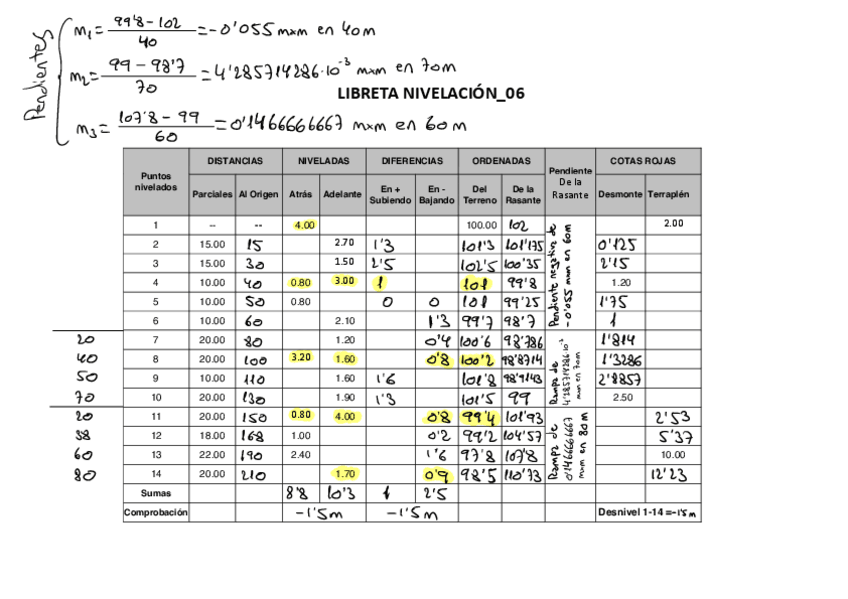 Pendientes
m₁= 99'8-102 / 40 =-0'055 mxm en 40m
m₂= 99-98'7 / 70 =4'285714286·10⁻³ mxm en 70m
LIBRETA NIVELACIÓN_06
m₃= 107'8-99 / 60 =0'1466666667 mxm en 60m
Puntos nivelados DISTANCIAS NIVELADAS DIFERENCIAS ORDENADAS Pendiente De la Rasante COTAS ROJAS
Parciales Al Origen Atrás Adelante En + Subiendo En - Bajando Del Terreno De la Rasante Desmonte Terraplén
1 -- -- 4.00 100.00 102 2.00
2 15.00 15 2.70 1'3 101'3 101'175 0'125
3 15.00 30 1.50 2'5 102'5 100'35 2'15
4 10.00 40 0.80 3.00 1 101 99'8 1.20
5 10.00 50 0.80 0 0 101 99'25 1'75
6 10.00 60 2.10 1'3 99'7 98'7 1
Pendiente negativa de -0'055 mxm en 60m
20 7 20.00 80 1.20 0'4 100'6 98'786 1'814
40 8 20.00 100 3.20 1.60 0'8 100'2 98'8714 1'3286
50 9 10.00 110 1.60 1'6 101'8 98'9143 2'8857
70 10 20.00 130 1.90 1'3 101'5 99 2.50
Rampa de 4'285714286·10⁻³ mxm en 70m
20 11 20.00 150 0.80 4.00 0'8 99'4 101'93 2'53
38 12 18.00 168 1.00 0'2 99'2 104'57 5'37
60 13 22.00 190 2.40 1'6 97'8 107'8 10.00
80 14 20.00 210 1.70 0'9 98'5 110'73 12'23
Rampa de 0'1466666667 mxm en 80m
Sumas 8'8 10'3 1 2'5
Comprobación -1'5m -1'5m Desnivel 1-14 =-1'5m